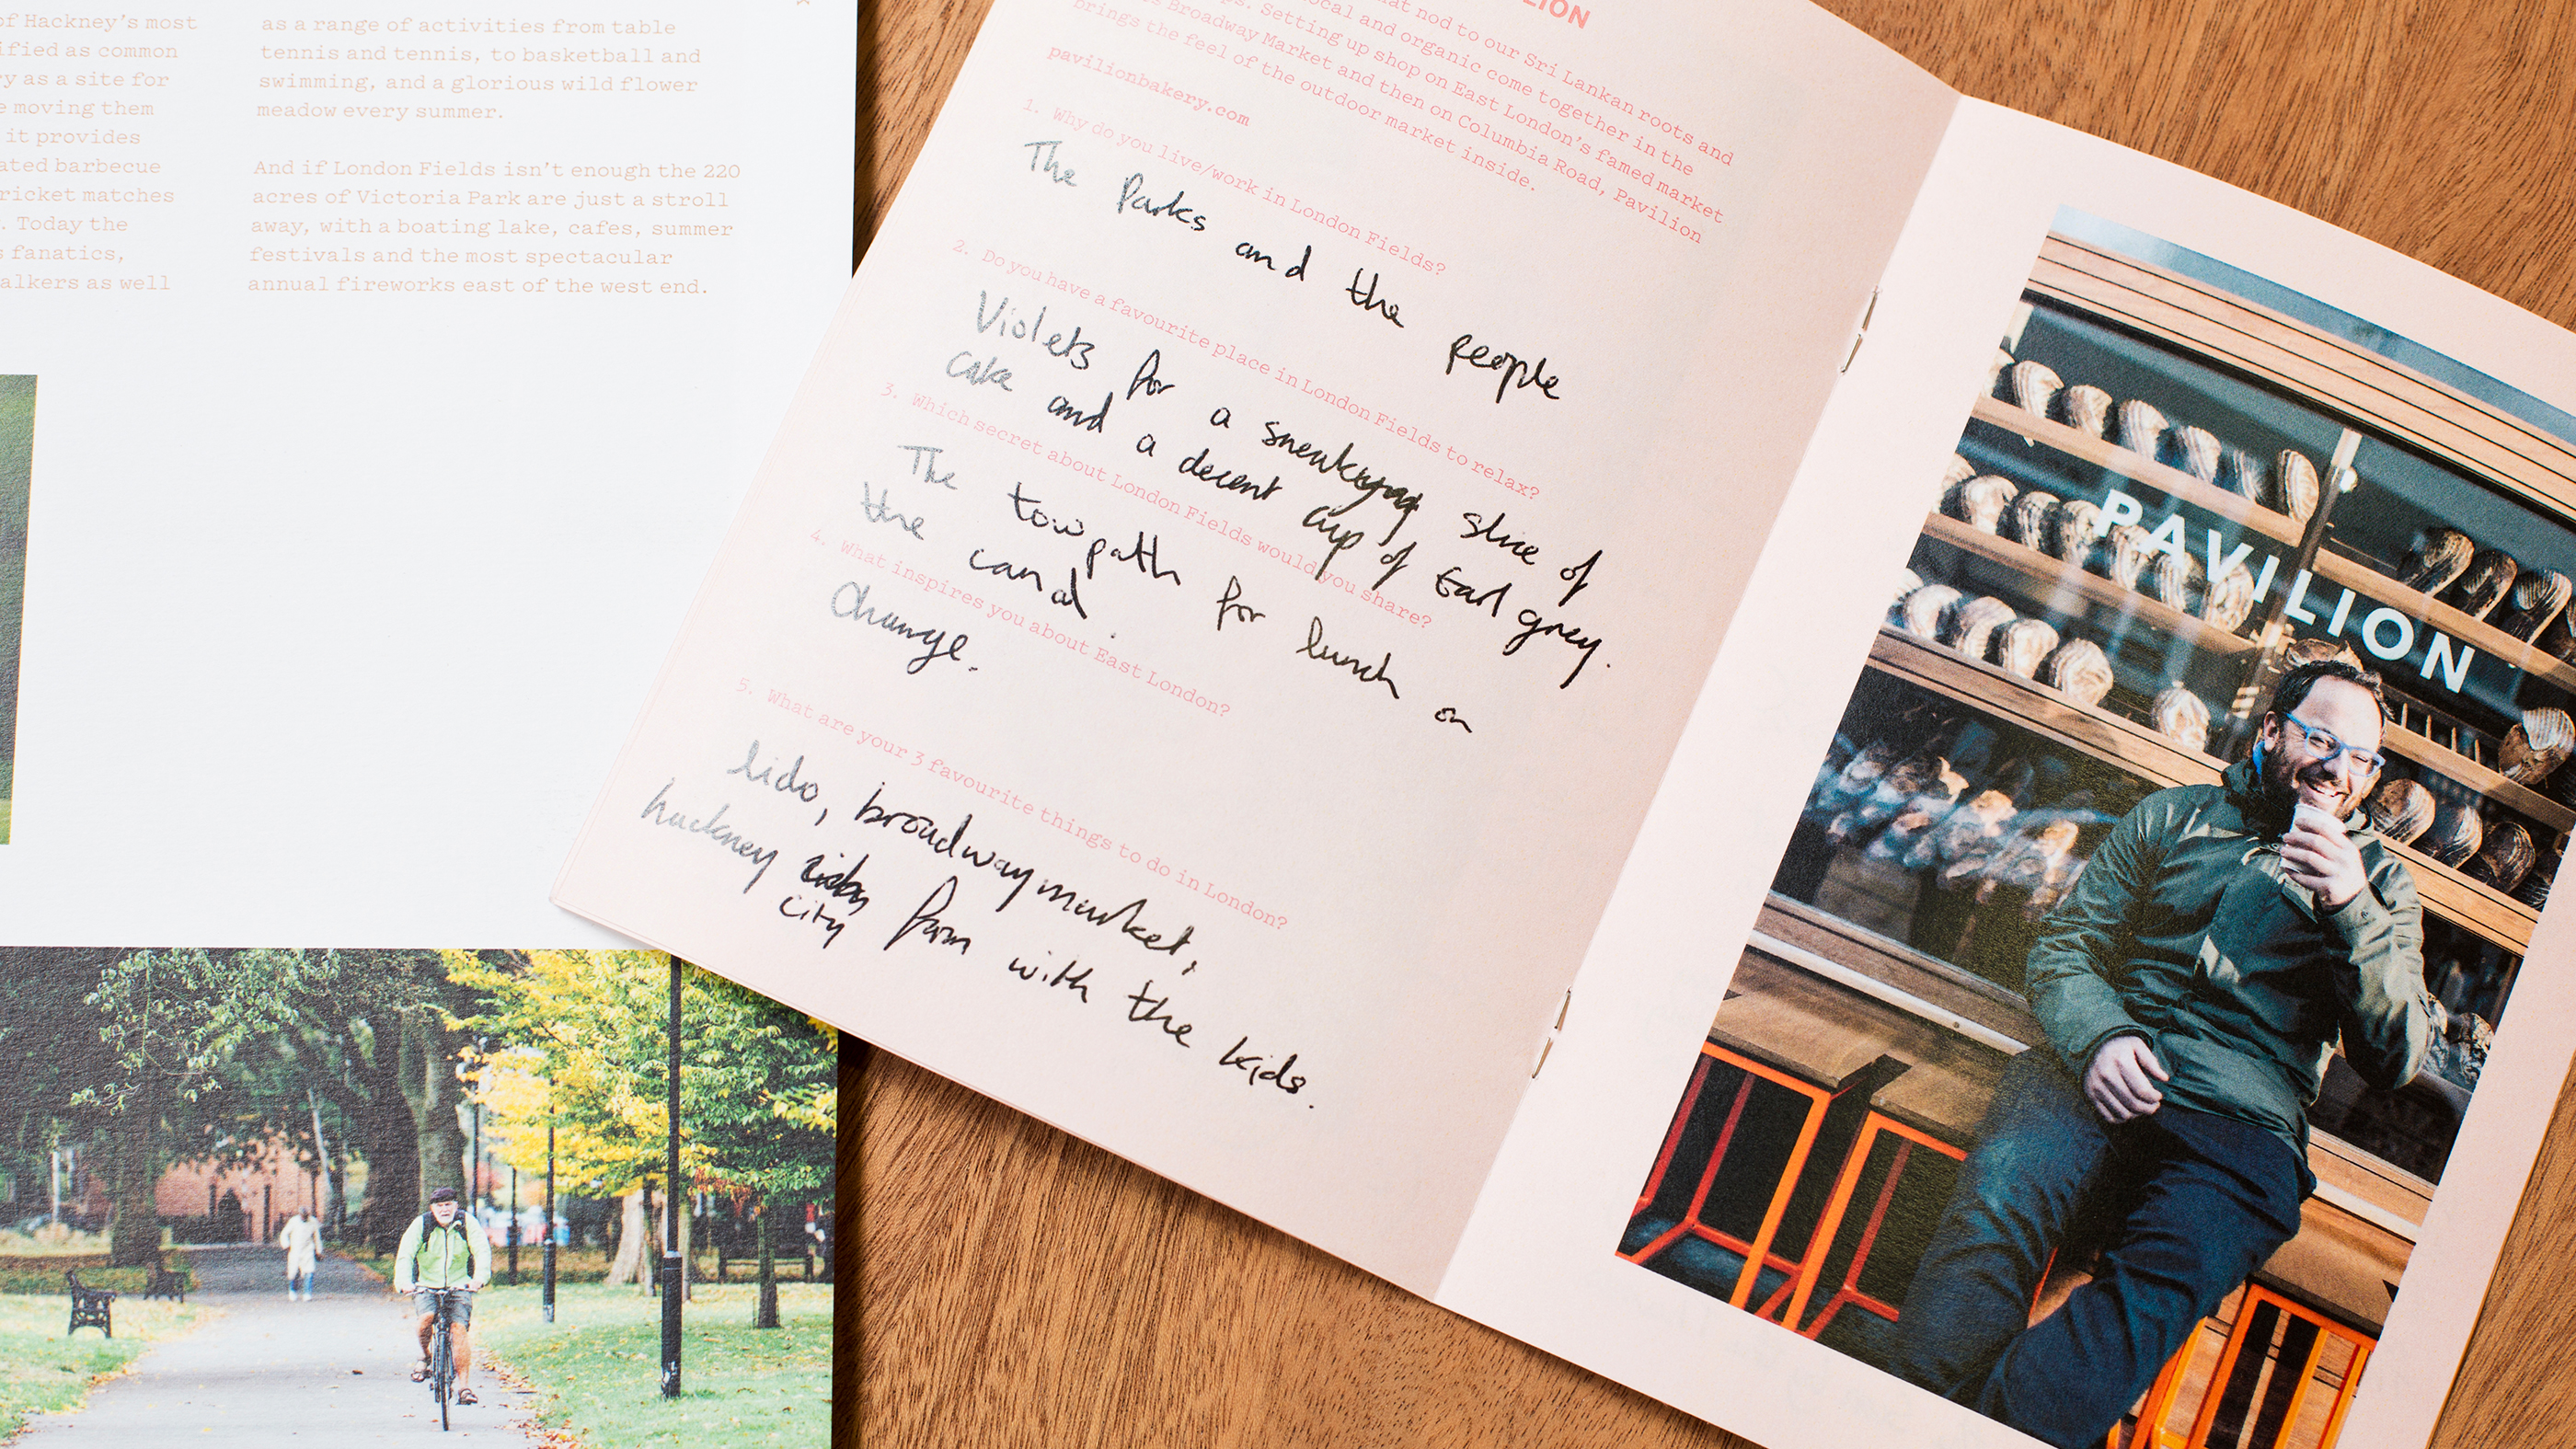 of Hackney's most
ified as common
y as a site for
e moving them
it provides
ated barbecue
ricket matches
. Today the
s fanatics,
alkers as well
as a range of activities from table
tennis and tennis, to basketball and
swimming, and a glorious wild flower
meadow every summer.
And if London Fields isn't enough the 220
acres of Victoria Park are just a stroll
away, with a boating lake, cafes, summer
festivals and the most spectacular
annual fireworks east of the west end.
LION
at nod to our Sri Lankan roots and
ocal and organic come together in the
ps. Setting up shop on East London's famed market
s Broadway Market and then on Columbia Road, Pavilion
brings the feel of the outdoor market inside.
pavilionbakery.com
1. Why do you live/work in London Fields?
The Parks and the people
2. Do you have a favourite place in London Fields to relax?
Violets for a sneaky slice of
cake and a decent cup of Earl grey.
3. Which secret about London Fields would you share?
The towpath for lunch on
the canal.
4. What inspires you about East London?
Change.
5. What are your 3 favourite things to do in London?
lido, broadway market,
hackney farm with the kids.
city
PAVILION